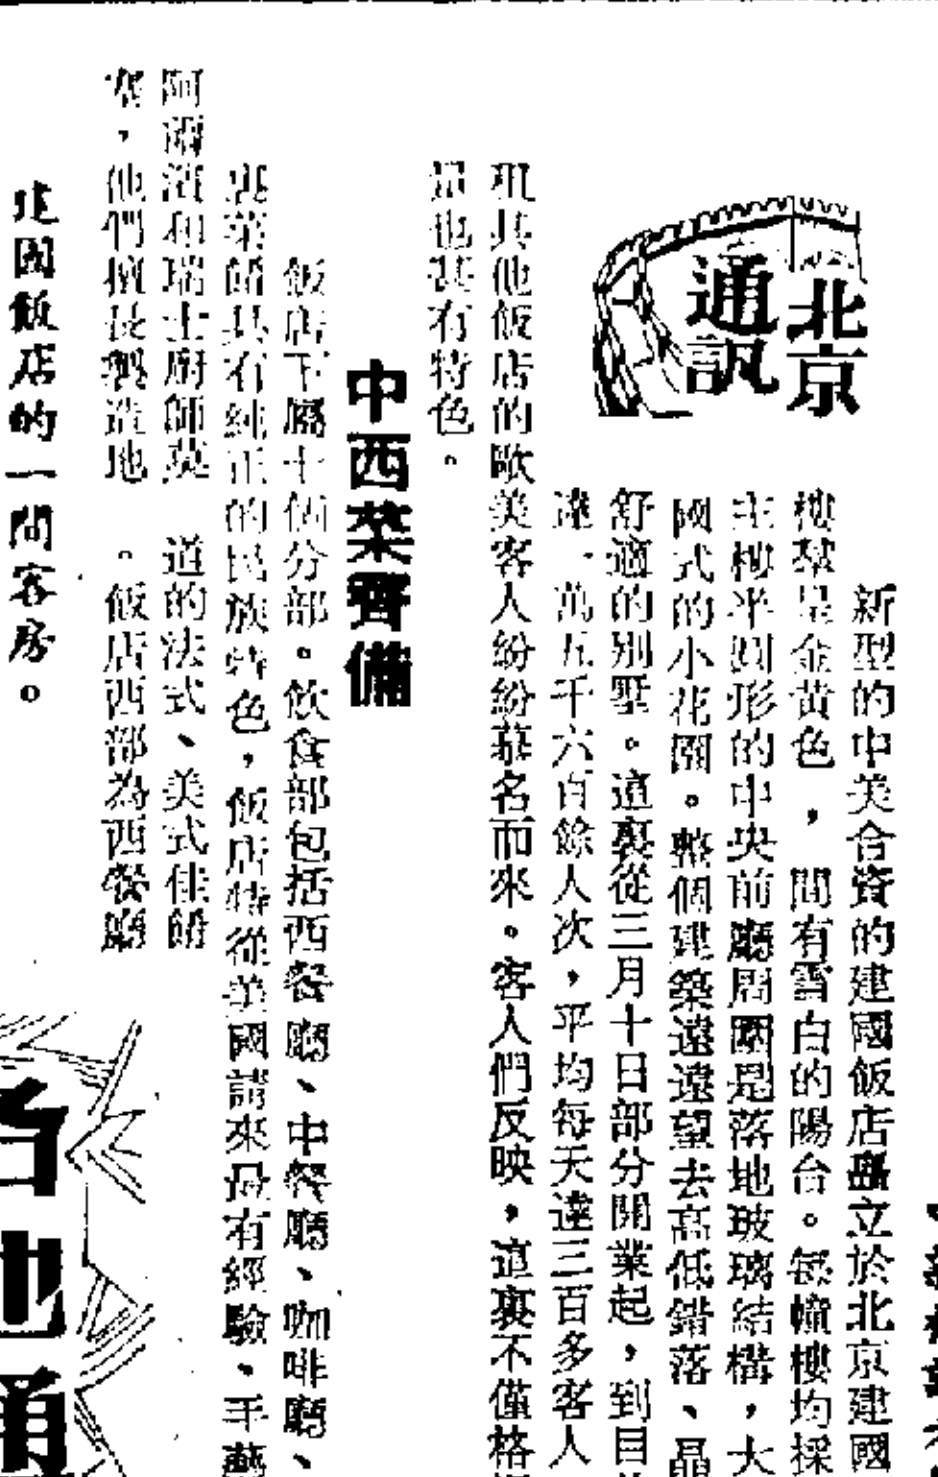 北京
通訊
新型的中美合資的建國飯店矗立於北京建國
樓羣呈金黃色，間有雪白的陽台。每幢樓均採
主樓半圓形的中央前廳周圍是落地玻璃結構，大
國式的小花園。整個建築遠遠望去高低錯落、晶
舒適的別墅。這裏從三月十日部分開業起，到目
達一萬五千六百餘人次，平均每天達三百多客人
和其他飯店的歐美客人紛紛慕名而來。客人們反映，這裏不僅格
量也甚有特色。
中西菜齊備
飯店下屬十個分部。飲食部包括西餐廳、中餐廳、咖啡廳、
裏菜餚具有純正的民族特色，飯店特從美國請來最有經驗、手藝
阿爾濱和瑞士廚師莫
道的法式、美式佳餚
塞，他們擅長製造地
。飯店西部為西餐廳
建國飯店的一間客房。
各地通